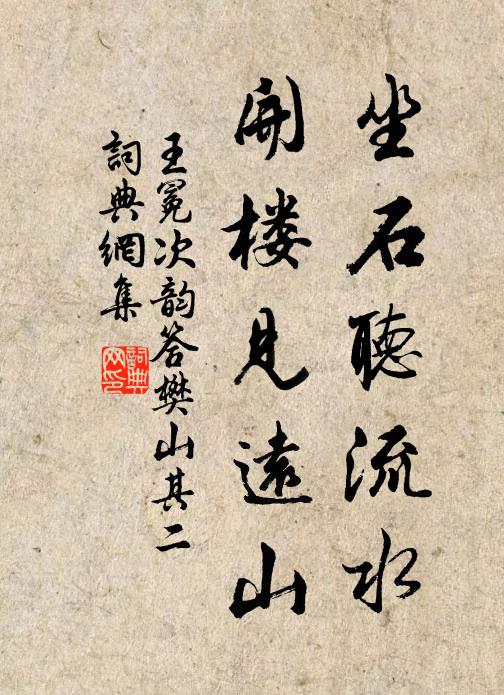 坐石聽流水
開楼見遠山
王冕次韵答樊山其二
詞典網集
詞典网印